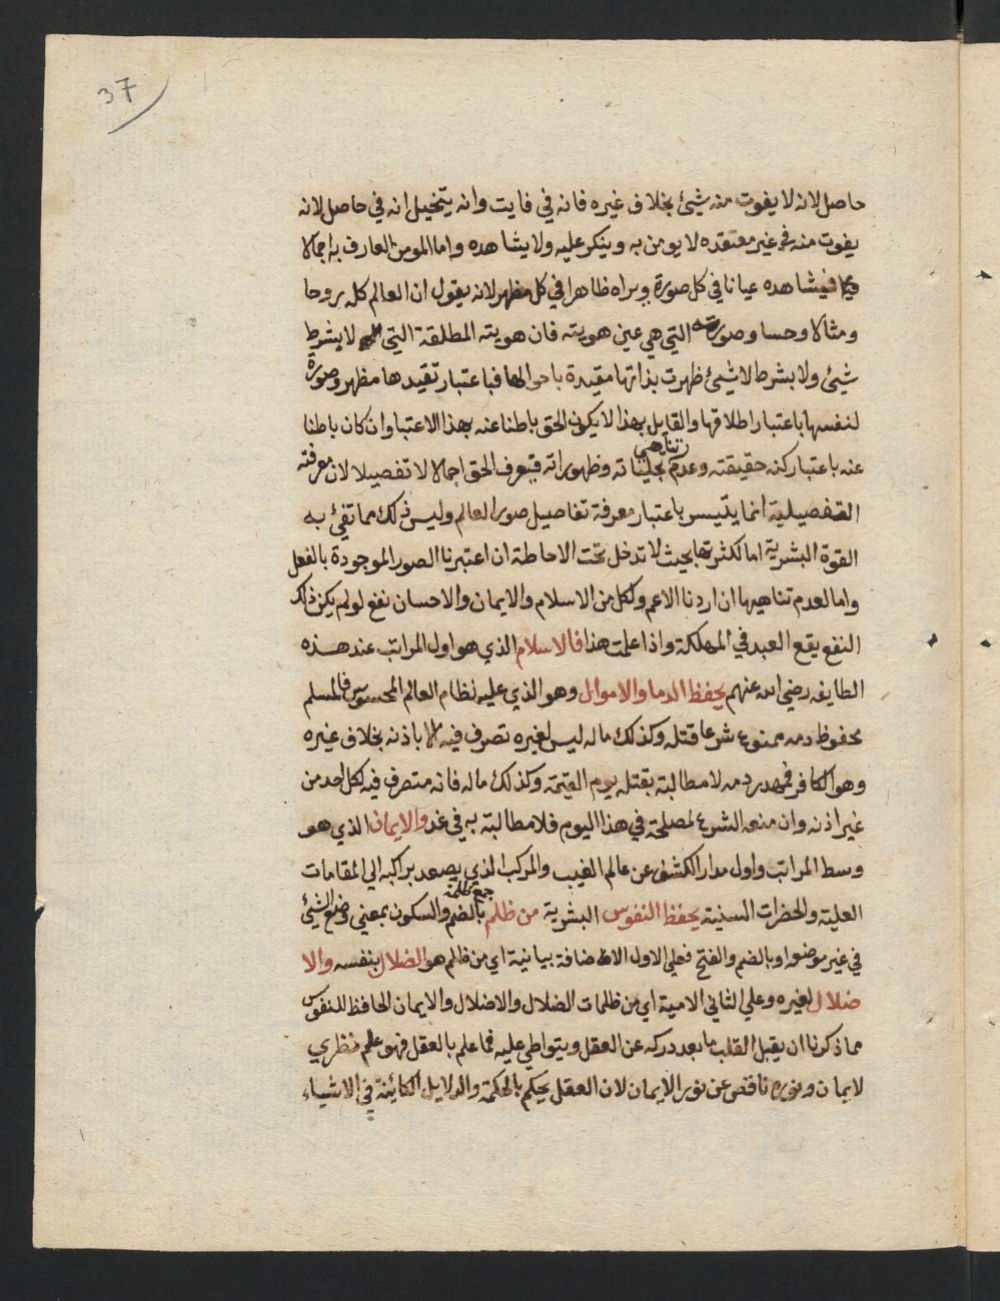 37
حاصل لانه لا يفوت منه شيئ بخلاف غيره فانه في فايت وانه يتخيل انه في حاصل لانه
يفوت منه في غير معتقده لا يومن به وينكر عليه ولا يشاهده واما المومن العارف به اجمالا
فيشاهده عيانا في كل صورة ويراه ظاهرا في كل مظهر لانه يقول ان العالم كله روحا
ومثالا وحسا وصورته التي هي عين هويته فان هويته المطلقة التي لا بشرط
شيئ ولا بشرط لا شيئ ظهرت بذاتها مقيدة باحوالها فباعتبار تقيدها مظهر وصورة
لنفسها باعتبار اطلاقها والقايل بهذا لا يكون الحق باطنا عنه بهذا الاعتبار وان كان باطنا
عنه باعتبار كنه حقيقته وعدم تناهي تجلياته وظهوراته فيعرف الحق اجمالا لا تفصيلا لان معرفته
التفصيلية انما يتيسر باعتبار معرفة تفاصيل صور العالم وليس ذلك مما تفئ به
القوة البشرية اما لكثرتها بحيث لا تدخل تحت الاحاطة ان اعتبرنا الصور الموجودة بالفعل
واما لعدم تناهيها ان اردنا الاعم ولكل من الاسلام والايمان والاحسان نفع لو لم يكن ذلك
النفع يقع العبد في المهلكة واذا علمت هذا فالاسلام الذي هو اول المراتب عند هذه
الطايفه رضي الله عنهم يحفظ الدما والاموال وهو الذي عليه نظام العالم المحسوس فالمسلم
محفوظ دمه ممنوع شرعا قتله وكذلك ماله ليس لغيره تصرف فيه الا باذنه بخلاف غيره
وهو الكافر فمهدر دمه لا مطالبة بقتله يوم القيمة وكذلك ماله فانه متصرف فيه لكل احد من
غير اذنه وان منعه الشرع لمصلحة في هذا اليوم فلا مطالبة به في غد والايمان الذي هو
وسط المراتب واول مدار الكشف عن عالم الغيب والمركب الذي يصعد براكبه الي المقامات
العلية والحضرات السنية يحفظ النفوس البشرية من ظلم جمع ظلمة بالضم والسكون بمعني وضع الشيئ
في غير موضعه او بالضم والفتح فعلي الاول الاضافة بيانية اي من ظلم هو الضلال بنفسه والا
ضلال لغيره وعلي الثاني الامية اي من ظلمات الضلال والاضلال والايمان الحافظ للنفوس
مما ذكرنا ان يقبل القلب ما بعد دركه عن العقل ويتواطي عليه فما علم بالعقل فهو علم نظري
لايمان ونوره ناقص عن نور الايمان لان العقل يحكم بالحكمة والدلايل الكائنة في الاشياء